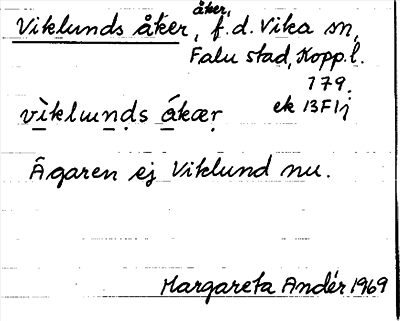 åker,
Viklunds åker, f.d. Vika sn,
Falu stad, Kopp.l.
179.
ek 13F1j
vìklu̵n̠ḍs á̠kæṛ
Ägaren ej Viklund nu.
Margareta Andér 1969